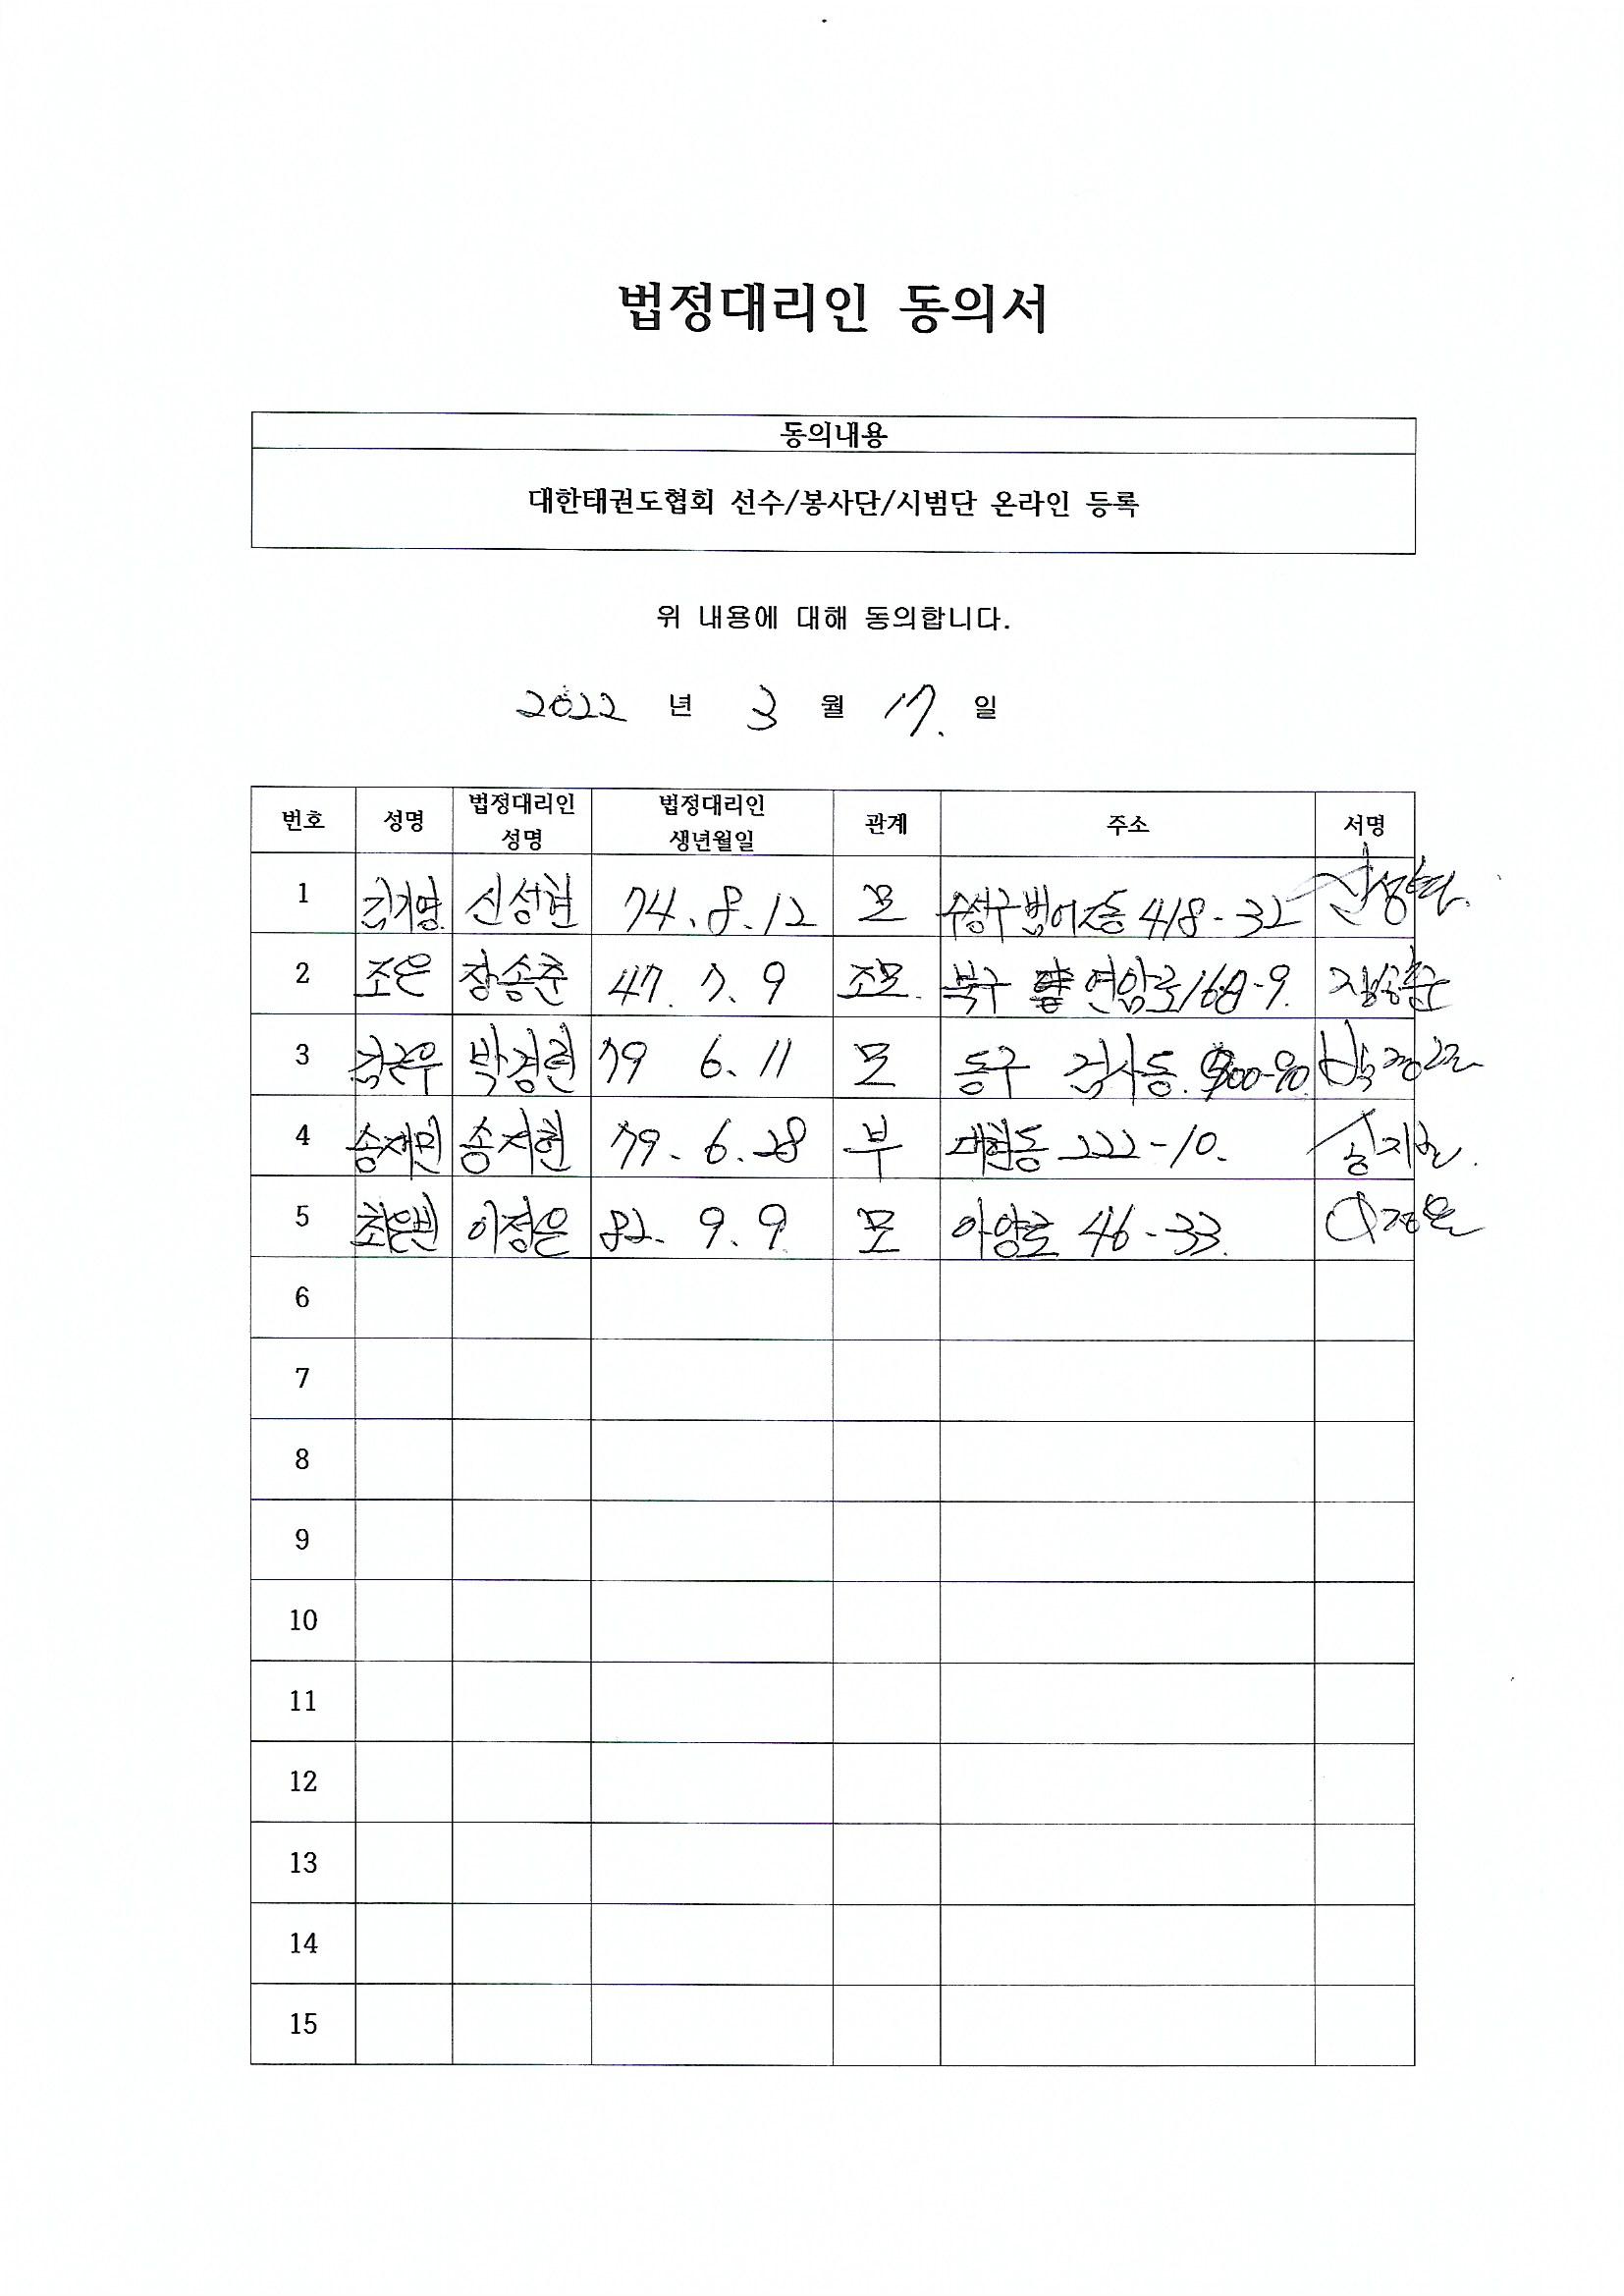 법정대리인 동의서
동의내용
대한태권도협회 선수/봉사단/시범단 온라인 등록
위 내용에 대해 동의합니다.
2022 년 3 월 17. 일
번호 성명 법정대리인 성명 법정대리인 생년월일 관계 주소 서명
1 김기영 신성현 74. 8. 12 모 수성구 범어2동 418-32 신성현
2 조은 장송준 47. 7. 9 조모. 북구 연암로 168-9. 장송준
3 김근우 박경현 79 6. 11 모 동구 검사동. 박경현
4 송재민 송지현 79. 6. 28 부 대현동 222-10. 송지현
5 최은빈 이정은 82. 9. 9. 모 아양로 46-33. 이정은
6
7
8
9
10
11
12
13
14
15